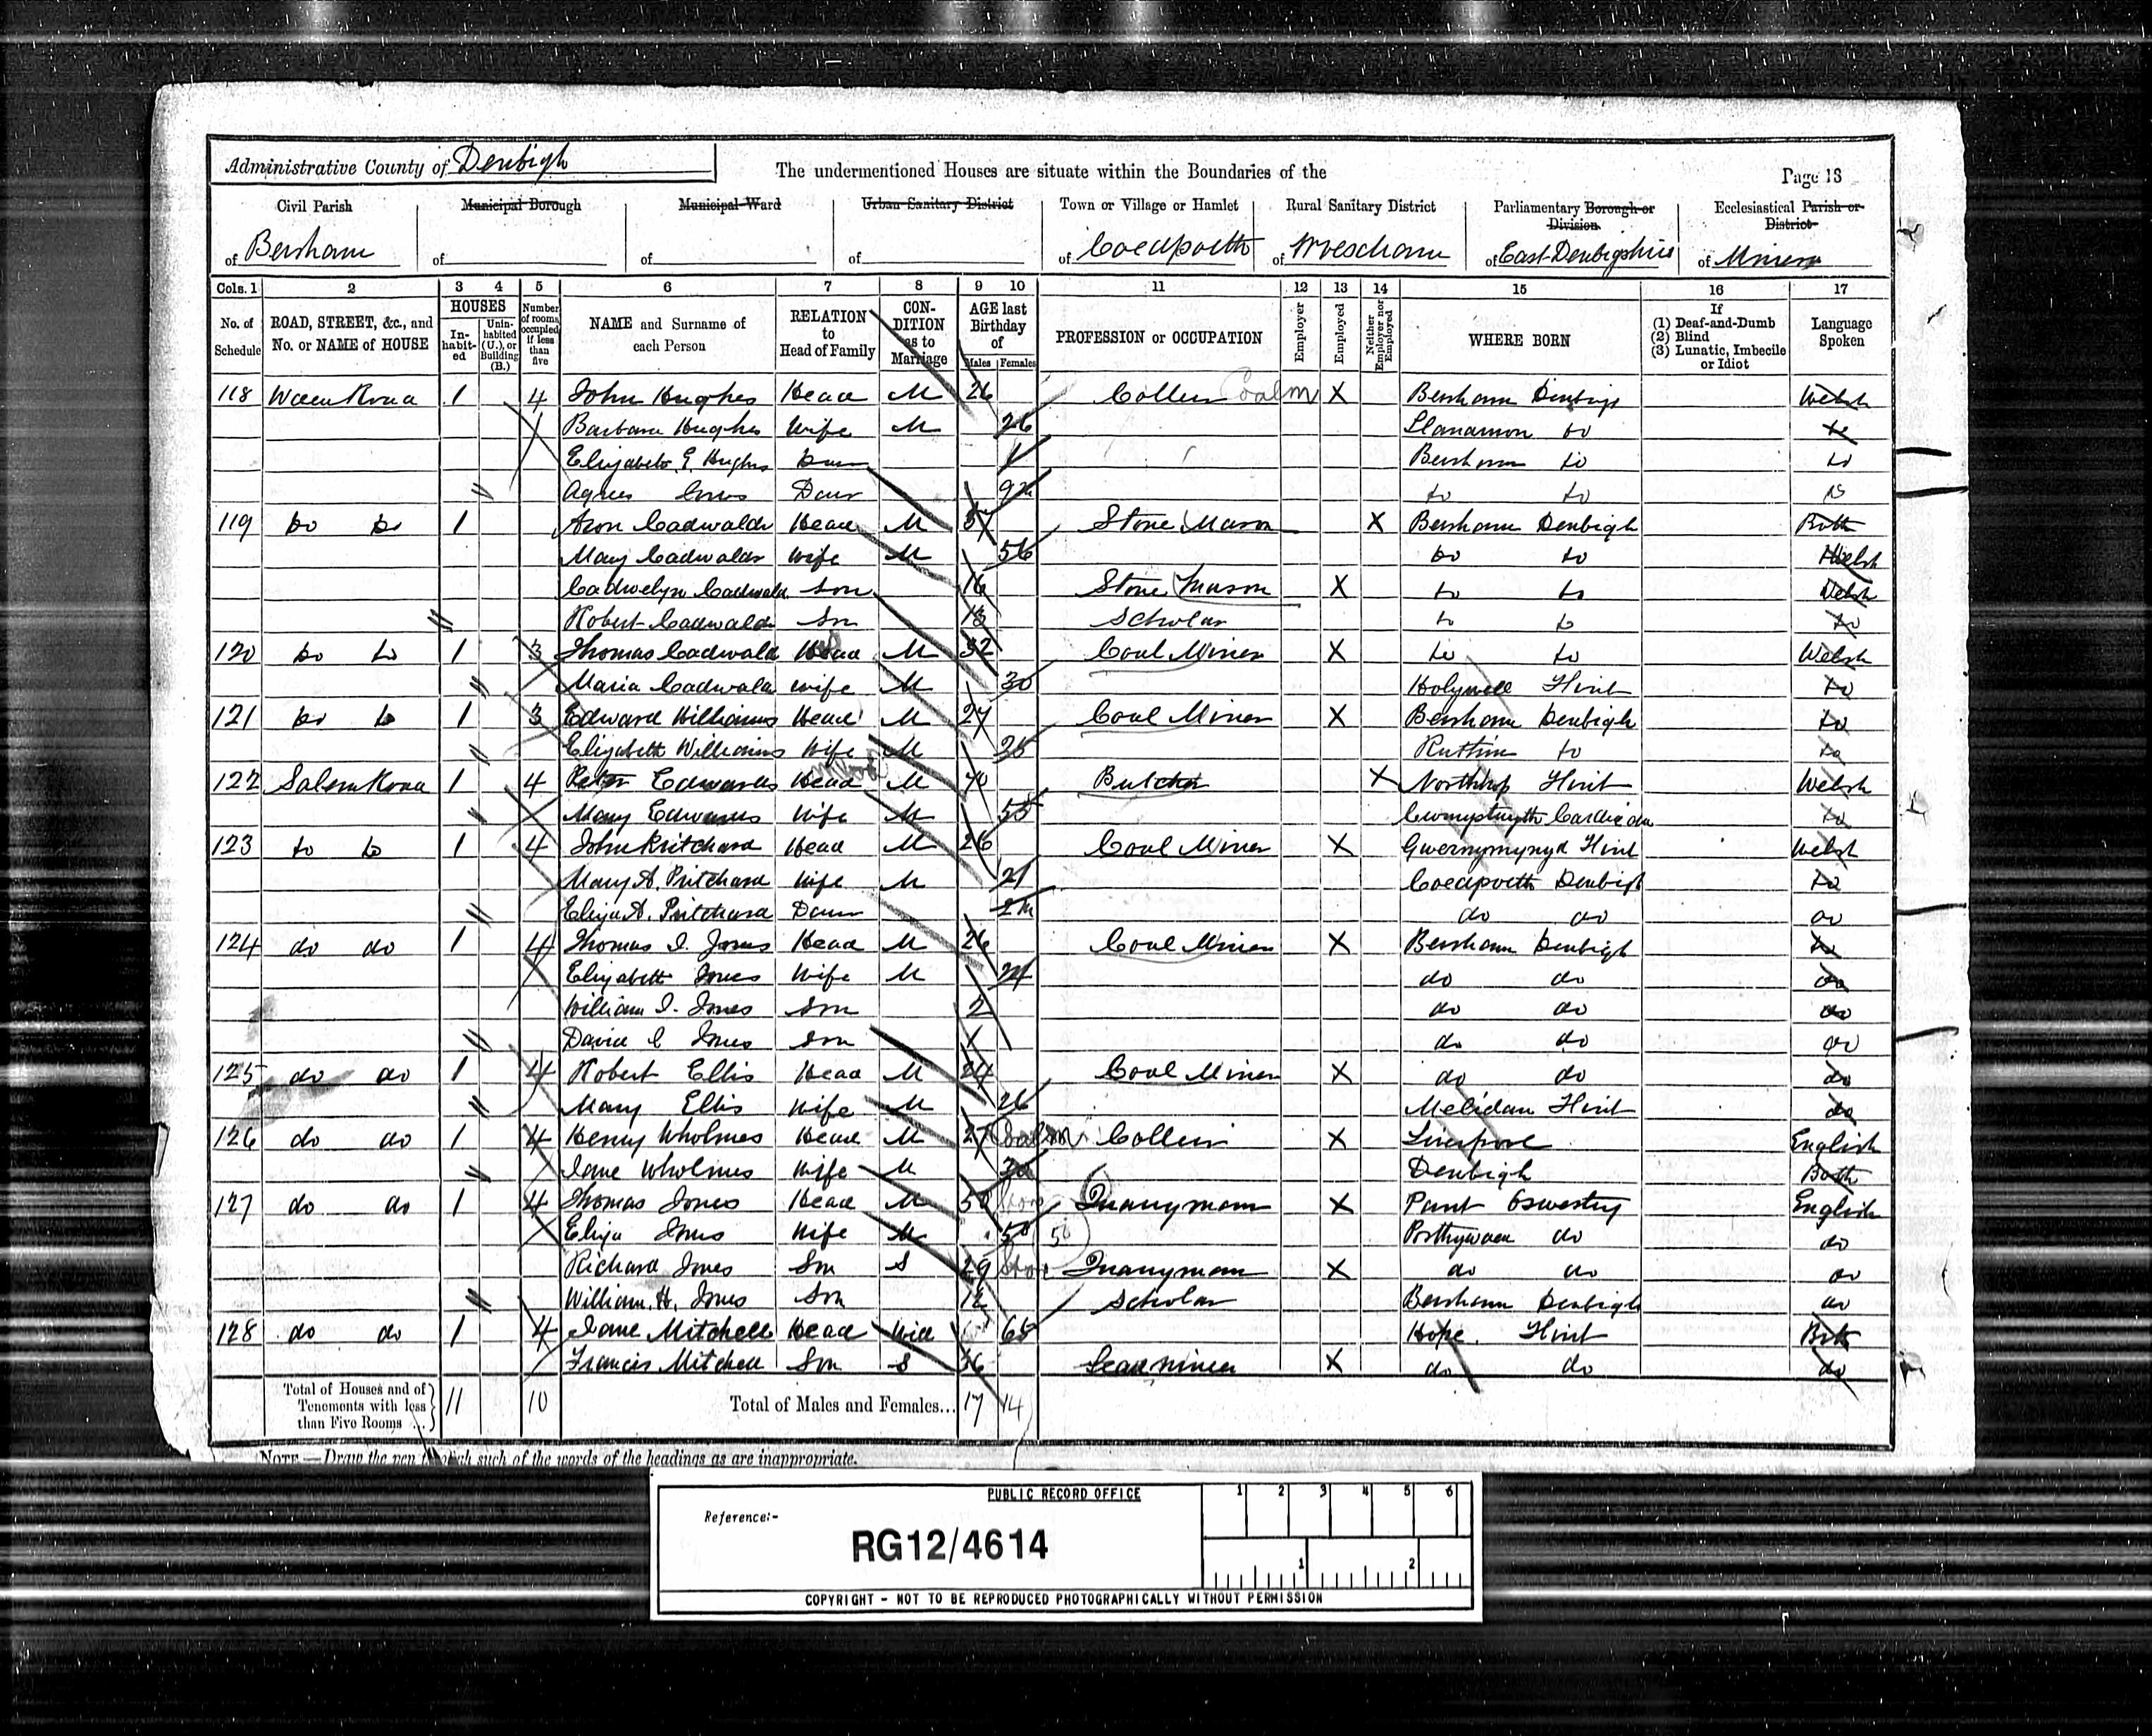 Administrative County of Denbigh
The undermentioned Houses are situate within the Boundaries of the
Page 13
Civil Parish of Bersham
Municipal Borough of
Municipal Ward of
Urban Sanitary District of
Town or Village or Hamlet of Coedpoeth
Rural Sanitary District of Wrexham
Parliamentary Borough or Division of East Denbigshire
Ecclesiastical Parish or District of Minera
Cols. 1 2 3 4 5 6 7 8 9 10 11 12 13 14 15 16 17
No. of Schedule
ROAD, STREET, &c., and No. or NAME of HOUSE
HOUSES
In-habit-ed
Unin-habited (U.), or Building (B.)
Number of rooms occupied if less than five
NAME and Surname of each Person
RELATION to Head of Family
CON-DITION as to Marriage
AGE last Birthday of
Males Females
PROFESSION or OCCUPATION
Employer
Employed
Neither Employer nor Employed
WHERE BORN
If
(1) Deaf-and-Dumb
(2) Blind
(3) Lunatic, Imbecile or Idiot
Language Spoken
118 Waen Road 1 4 John Hughes Head M 26 Collier Coal m X Bersham Denbigh Welsh
Barbara Hughes Wife M 26 Llanarmon do do
Elizabeth E. Hughes Daur 1 Bersham do do
Agnes Daur 9m do do do
119 do do 1 Aron Cadwaldr Head M 57 Stone Mason X Bersham Denbigh Both
Mary Cadwaldr Wife M 56 do do Welsh
Cadwelyn Cadwald Son 16 Stone Mason X do do Welsh
Robert Cadwaldr Son 13 Scholar do do do
120 do do 1 3 Thomas Cadwald Head M 32 Coal Miner X do do Welsh
Maria Cadwald Wife M 30 Holywell Flint do
121 do do 1 3 Edward Williams Head M 27 Coal Miner X Bersham Denbigh do
Elizabeth Williams Wife M 25 Ruthin do do
122 Salem Road 1 4 Peter Edwards Head M 70 Butcher X Northop Flint Welsh
Mary Edwards Wife M 55 Cwmystwyth Cardigan do
123 do do 1 4 John Pritchard Head M 26 Coal Miner X Gwernymynyd Flint Welsh
Mary A. Pritchard Wife M 21 Coedpoeth Denbigh do
Eliza A. Pritchard Daur 2m do do do
124 do do 1 4 Thomas I. Jones Head M 26 Coal Miner X Bersham Denbigh do
Elizabeth Jones Wife M 24 do do do
William I. Jones Son 2 do do do
David C Jones Son 1 do do do
125 do do 1 4 Robert Ellis Head M 24 Coal Miner X do do do
Mary Ellis Wife M 26 Melidan Flint do
126 do do 1 4 Henry Wholmes Head M 27 Coal m Collier X Liverpool English
Jane Wholmes Wife M 30 Denbigh Both
127 do do 1 4 Thomas Jones Head M 50 Stone Quarryman X Pant Oswestry English
Eliza Jones Wife M 50 50 Porthywaen do do
Richard Jones Son S 29 Stone Quarryman X do do do
William. H. Jones Son 12 Scholar Bersham Denbigh do
128 do do 1 4 Jane Mitchell Head Wid 65 Hope. Flint Both
Francis Mitchell Son S 36 Lead miner X do do do
Total of Houses and of Tenements with less than Five Rooms ... 11 10 Total of Males and Females... 17 14
NOTE.—Draw the pen through such of the words of the headings as are inappropriate.
PUBLIC RECORD OFFICE
1 2 3 4 5 6
Reference:-
RG12/4614
1 2
COPYRIGHT - NOT TO BE REPRODUCED PHOTOGRAPHICALLY WITHOUT PERMISSION